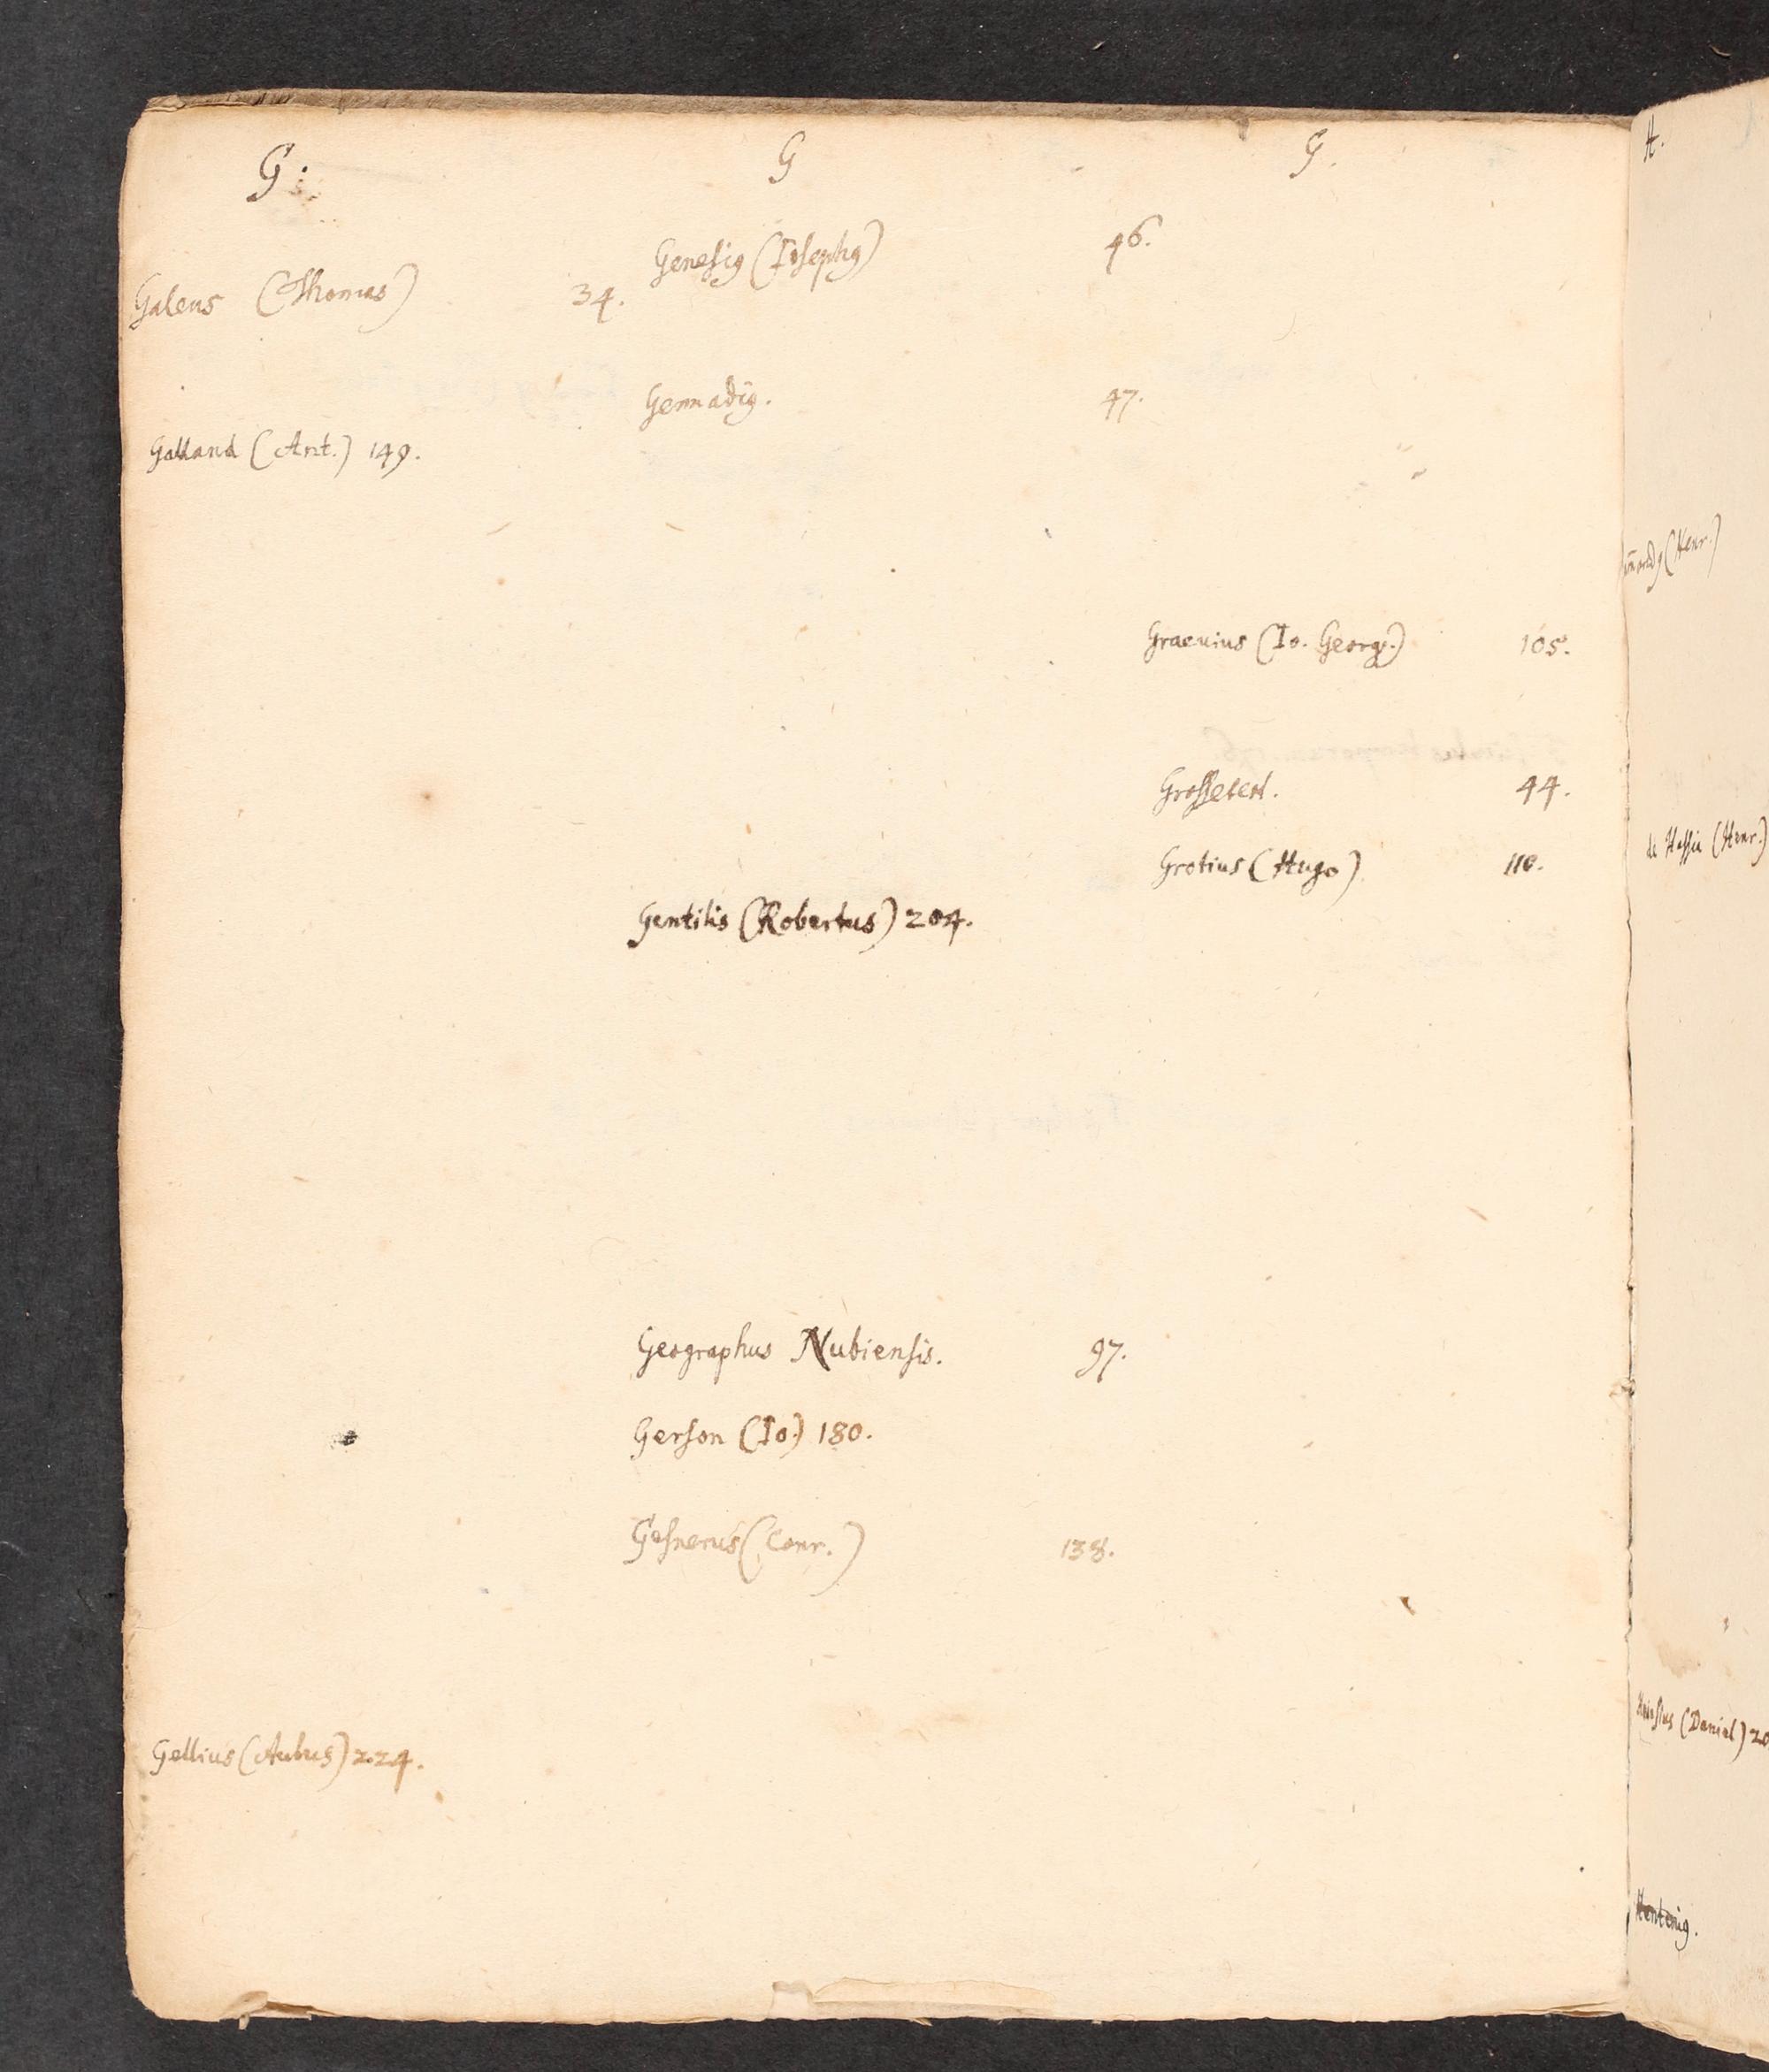 G.
Galeus (Thomas) 34.
Galland (Ant.) 149.
Gellius (Aulus) 224.
G
Genesiꝰ (Iosephꝰ) 46.
Gennadiꝰ. 47.
Gentilis (Robertus) 204.
Geographus Nubiensis. 97.
Gerson (Io.) 180.
Gesnerus (Conr.) 138.
G.
Graevius (Io. Georg.) 105.
Grossetest. 44.
Grotius (Hugo) 110.
H.
(Henr.)
de Hassia (Henr.)
Heinsius (Daniel) 20
Henteniꝰ.